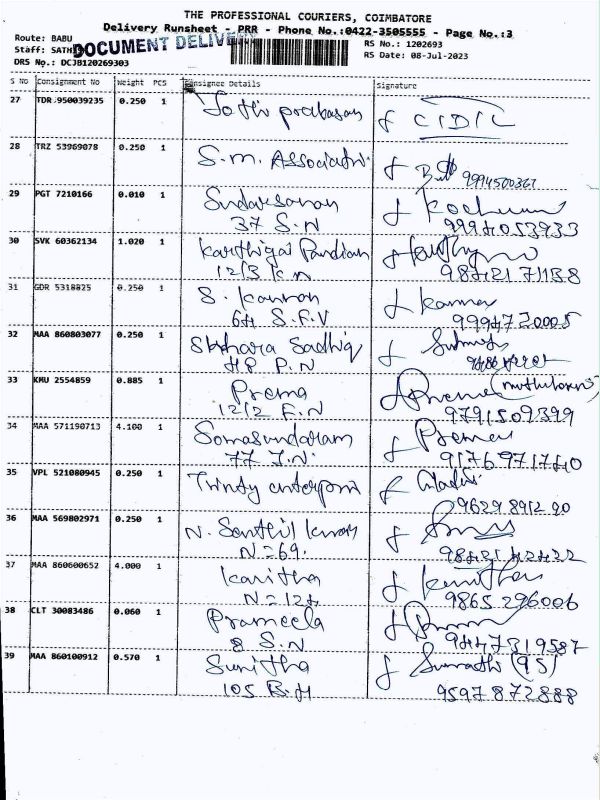 THE PROFESSIONAL COURIERS, COIMBATORE
Delivery Runsheet - PRR - Phone No.:0422-3505555 - Page No.:3
Route: BABU
RS No.: 1202693
DOCUMENT DELIVE
RS Date: 08-Jul-2023
DRS No.: DCJB120269303
S No Consignment No Weight PCS Consignee Details Signature
27 TDR 950039235 0.250 1 Jothi prabasan
28 TRZ 53969078 0.250 1 S.M. Associati
9994500367
29 PGT 7210166 0.010 1 Sudarsanan
37 S.N 9994053933
30 SVK 60362134 1.020 1 Karthigai Pandian
12/3 K.N 9842171138
31 GDR 5318825 0.250 1 S. Kannan Kannan
64 S.F.V 9994720005
32 MAA 860803077 0.250 1 Sadhiq
48 P.N
33 KMU 2554859 0.885 1 Prema Prema
12/2 E.N 9791509399
34 MAA 571190713 4.100 1 Somasundaram Prema
77 J.N 9176971740
35 VPL 521080945 0.250 1 Trinity enterpri
9629891290
36 MAA 569802971 0.250 1 N. Senthil Kumar
N=69. 9842142422
37 MAA 860600652 4.000 1 Kavitha Kavitha
N=124 9865296006
38 CLT 30083486 0.060 1 Prameela
8 S.N 9447319587
39 MAA 860100912 0.570 1 Sunitha Sumathi (95)
105 B.H 9597872888